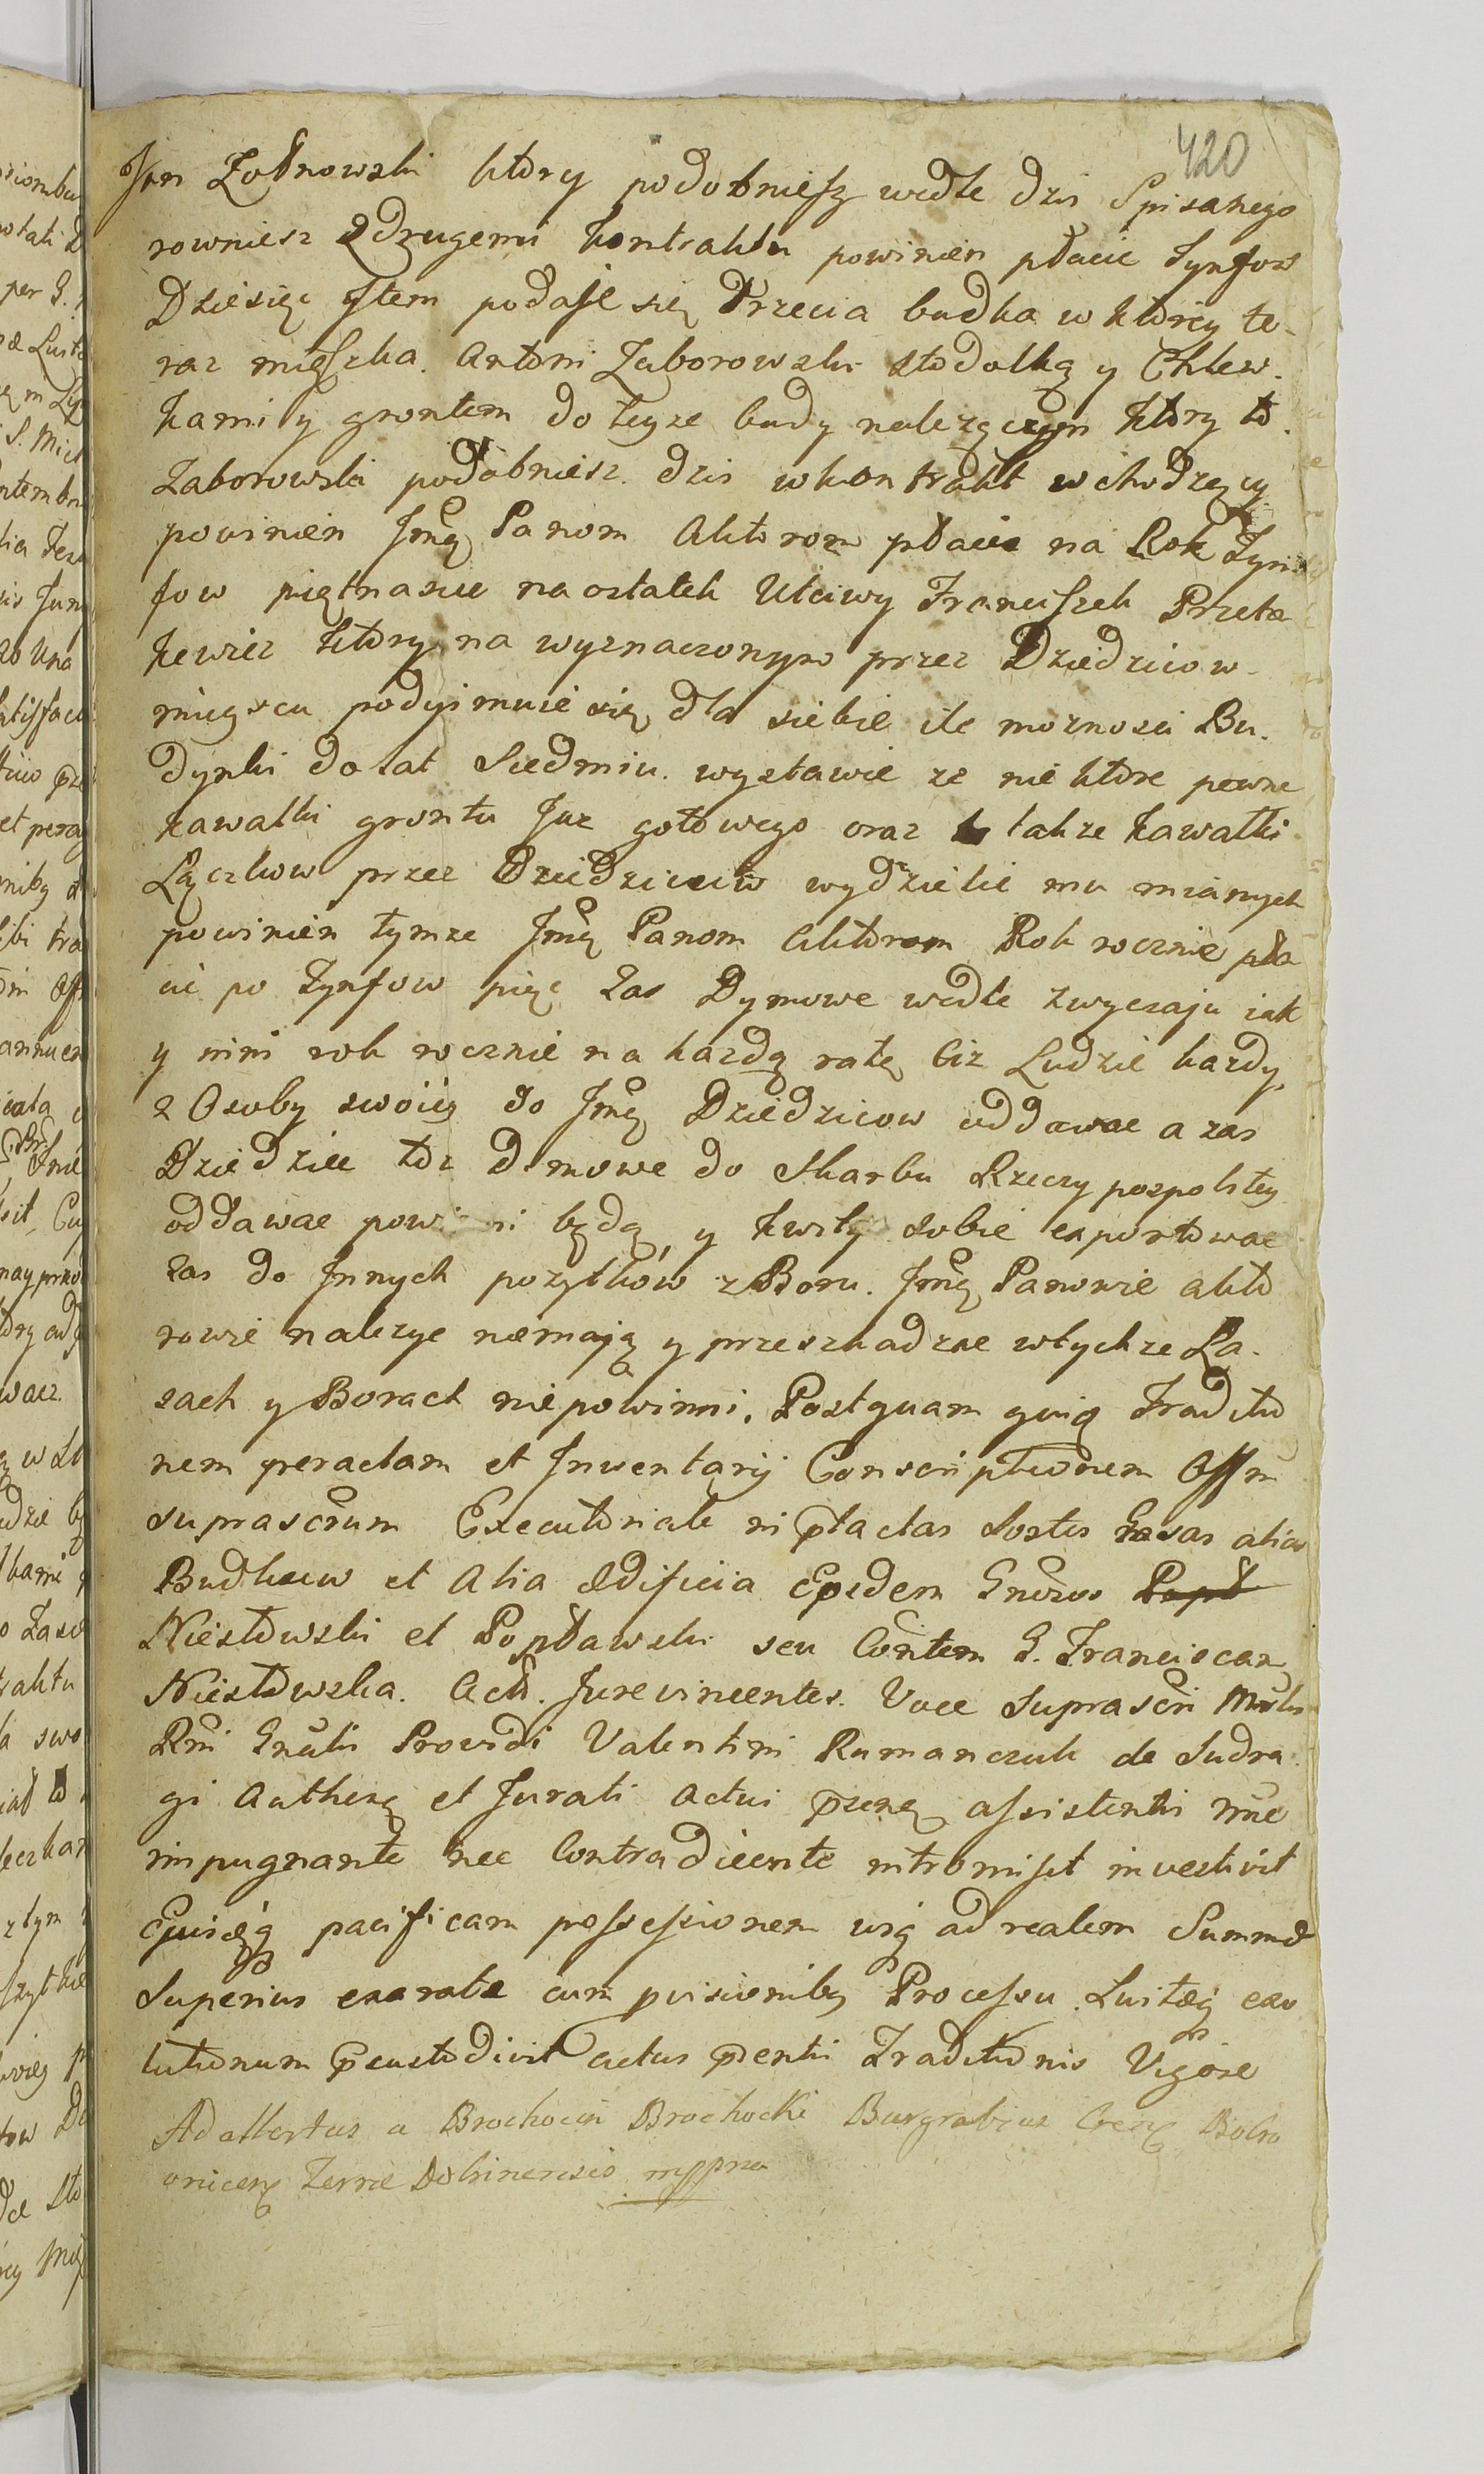 420
Jan Żołnowski ktory podobniesz wedle dzis Spisanego
rowniesz zdrugemi kontraktu powinien płacic Tynfow
Dziesięc Item podaie się Trzecia budka w ktorey te-
raz mieszka. Antoni Zaborowski stodołką y Chlew-
kami y grontem do teyze budy nalezącym Ktory to
Zaborowski podobniesz dzis wkontrakt wchodzący
powinien Jmę Panom Aktorom płacic na Rok Tyn
fow piętnascie naostatek Uczciwy Franciszek Przeta
kewicz ktory na wyznaczonym przez Dziedzicow
mieyscu podyimuie się dla siebie ile moznosci Bu-
dynki do lat Siedmiu wystawie ze nie ktore pewne
kawałki grontu Juz gotowego oraz takze kawałki
Łączkow przez Dziedzicow wydzielic mu mianych
powinien tymze Jmę Panom Aktorom Rok rocznie pła
cic po Tynfow pięc Zas Dymowe wedle zwyczaju iak
y inni rok rocznie na kazdą ratę ciz Ludzie kazdy
z Osoby swoiey do Jmę Dziedzicow oddawac a zas
Dziedzice toz Dymowe do Skarbu Rzeczy pospolitey
oddawac powinni będą y kwity sobie exportowac
Zas do Jnnych pozytków z Boru. Jmę Panowie akto
rowie nalezyc niemaią y przeszkadzac wtychze La-
sach y Borach niepowinni. Postquam quią Traditio
nem peractam et Inwentarij Conscriptionem Offm
suprascrum Executoriale in ptactas Sortes Casas alias
Budkow et Alia ædificia Eosdem Gnerosos Popł
Niestowski et Popławski seu Contem G. Franciscam
Niestowska. Act. Jurevincentes. Voce Suprascri Mnlis
Rni Gnalis Providi Valentini Rumanczuk de Sudra
gi Authenę et Jurati actui pnene assistentis nne
impugnante nec Contradicente intromisit investivit
Eisdeq pacificam possessionem usq ad realem Summæ
Superius exarate cum pvisioniby Processu. Luitaq exo
lutionum pcustodivit actus pdentis Traditionis Vigore
Adalbertus a Brochocin Brochocki Burgrabius Crenę Bobro
vnicenę Terræ Dobrinensis mppria